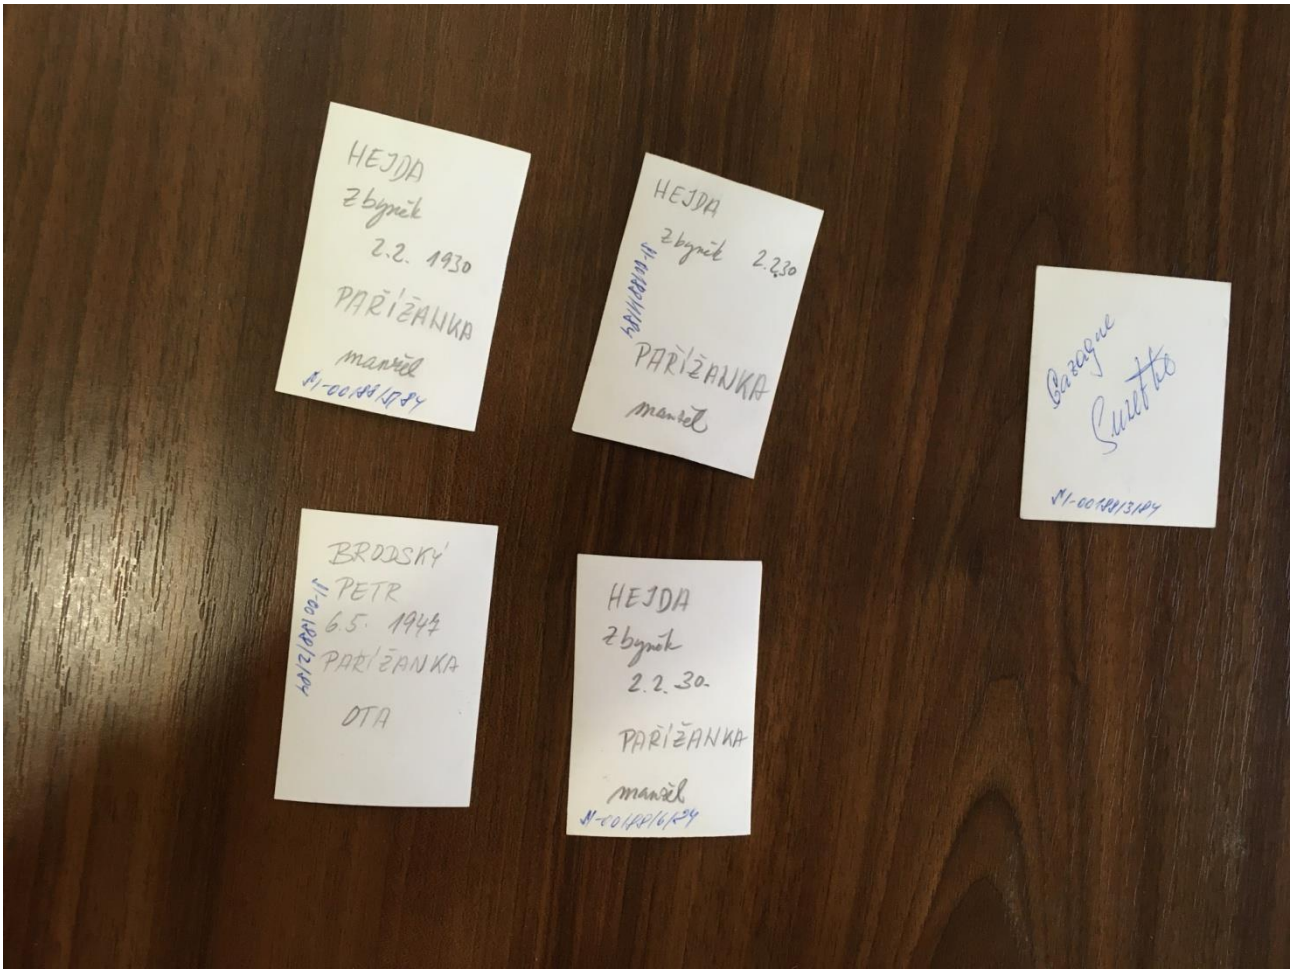 HEJDA
Zbyněk
2.2. 1930
PAŘÍŽANKA
manžel
N-00188/5/84
HEJDA
Zbyněk 2.2.30
N-00188/4/84
PAŘÍŽANKA
manžel
Cazagne
Surette
N-00188/3/84
BRODSKÝ
PETR
6.5. 1947
PAŘÍŽANKA
OTA
N-00188/2/84
HEJDA
Zbyněk
2.2.30.
PAŘÍŽANKA
manžel
N-00188/6/84